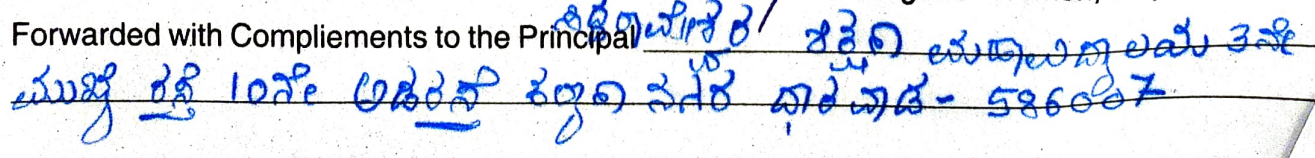 Forwarded with Compliements to the Principal ಶಿಕ್ಷಣ ಮಹಾವಿದ್ಯಾಲಯ 3ನೇ
ಮುಖ್ಯ ರಸ್ತೆ 10ನೇ ಅಡರಸ್ತೆ ಕಲ್ಯಾಣ ನಗರ ಧಾರವಾಡ - 586007